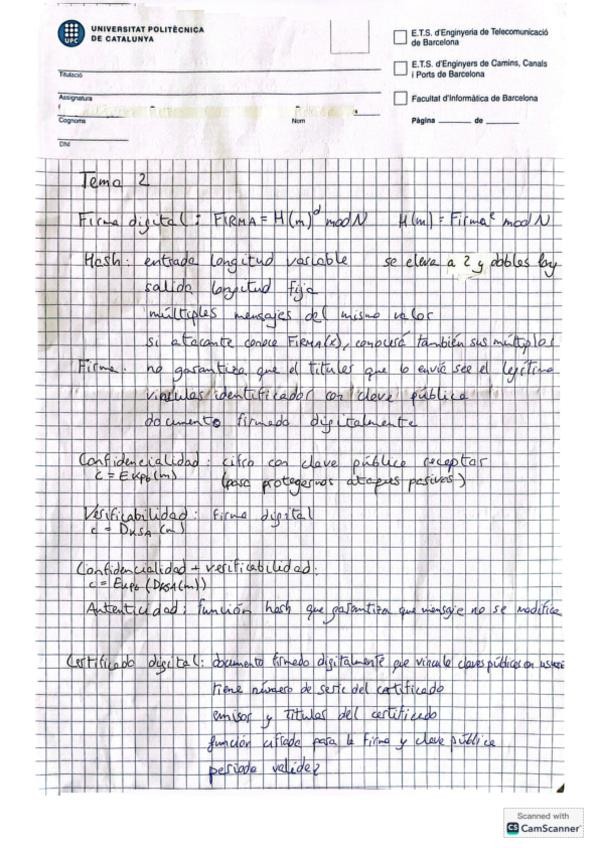 UNIVERSITAT POLITÈCNICA
DE CATALUNYA
UPC
E.T.S. d'Enginyeria de Telecomunicació
de Barcelona
E.T.S. d'Enginyers de Camins, Canals
i Ports de Barcelona
Facultat d'Informàtica de Barcelona
Titulació
Assignatura
Cognoms Nom
Pàgina de
DNI
Tema 2
Firma digital: FIRMA = H(m)^d mod N H(m) = Firma^e mod N
Hash: entrada longitud variable se eleva a 2 y dobles
salida longitud fija
múltiples mensajes del mismo valor
si atacante conoce FIRMA(x), conocerá también sus múltiplos
Firma: no garantiza que el titular que lo envía see el legítimo
vincular identificador con clave pública
documento firmado digitalmente
Confidencialidad: cifro con clave público receptor
c = E_KPb(m) (para protegernos ataques pasivos)
Verificabilidad: firma digital
c = D_KSA(m)
Confidencialidad + verificabilidad:
c = E_KPb(D_KSA(m))
Autenticidad: función hash que garantiza que mensaje no se modifica
Certificado digital: documento firmado digitalmente que vincula claves públicas con
tiene número de serie del certificado
emisor y titular del certificado
función cifrado para la firma y clave pública
periodo validez
Scanned with
CS CamScanner